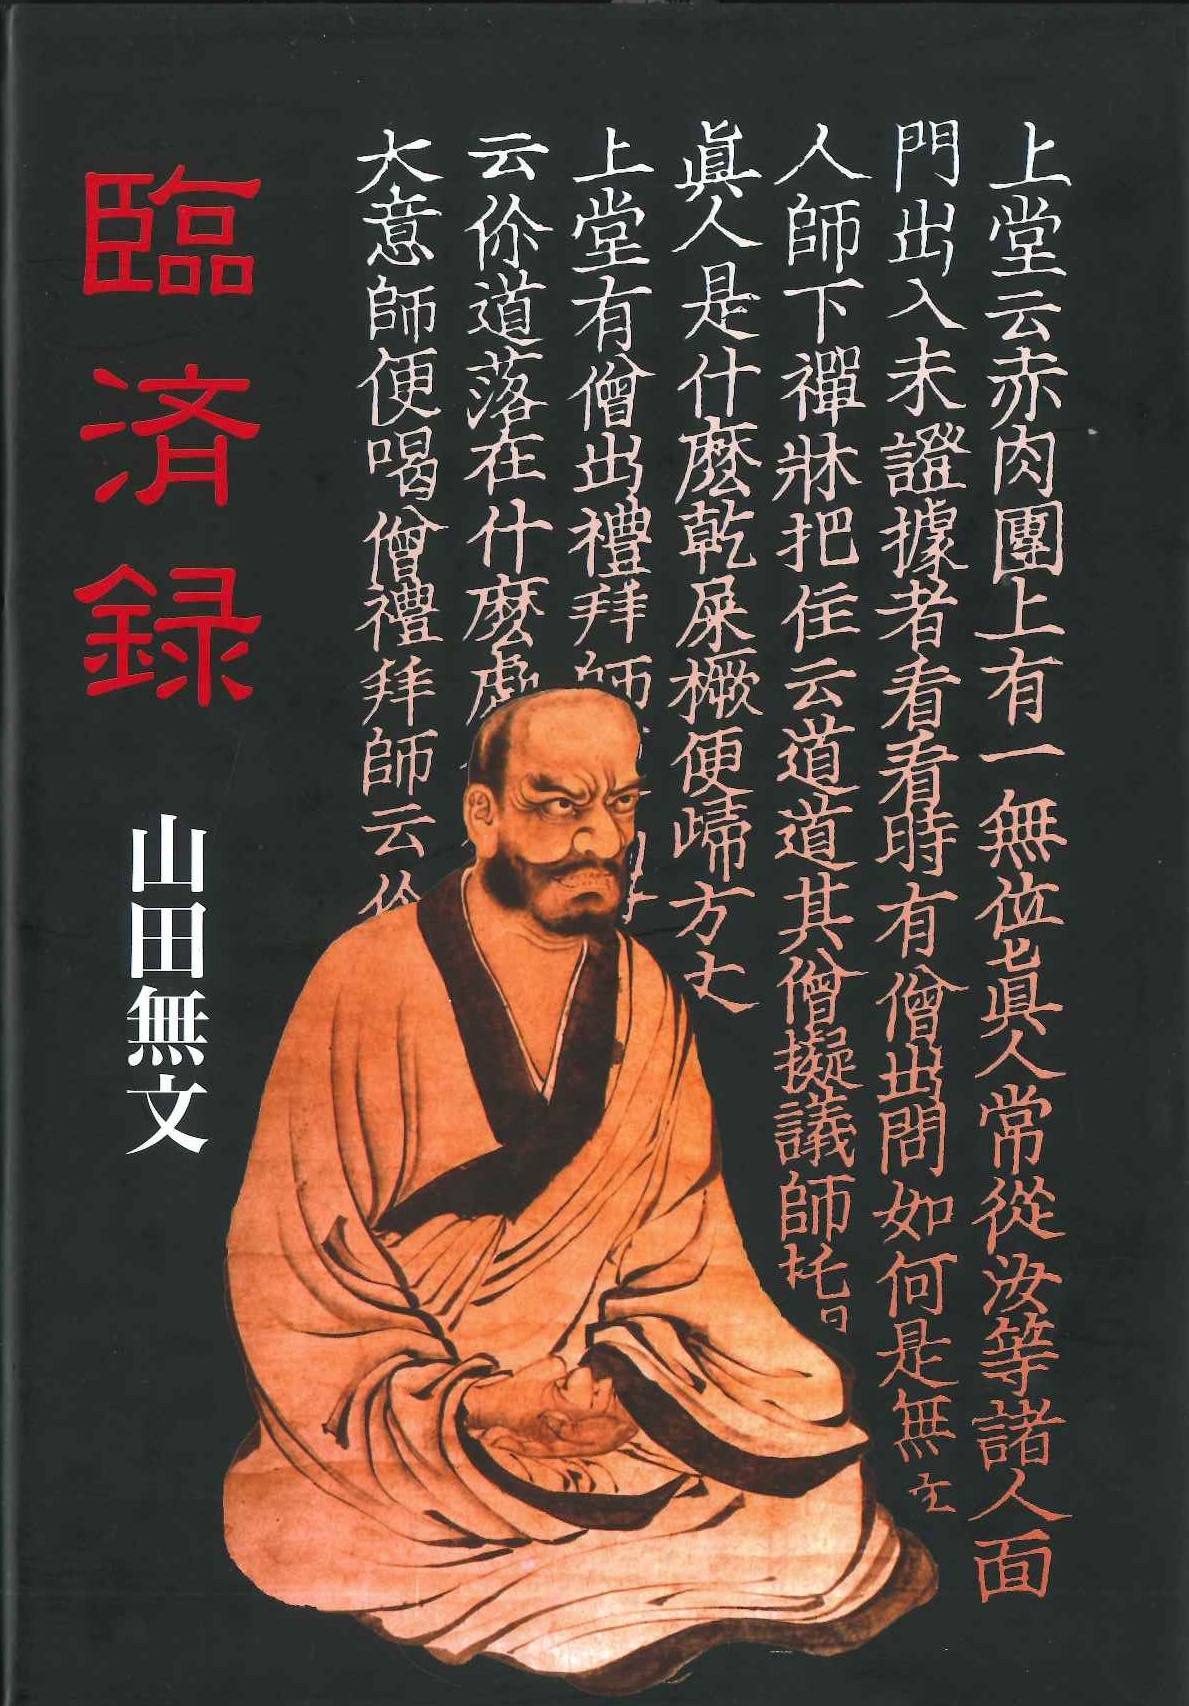 上堂云赤肉團上有一無位眞人常從汝等諸人面
門出入未證據者看看時有僧出問如何是無
人師下禪牀把住云道道其僧擬議師托
眞人是什麼乾屎橛便歸方丈
上堂有僧出禮拜師
云你道落在什麼處
大意師便喝僧禮拜師云你
臨済録
山田無文